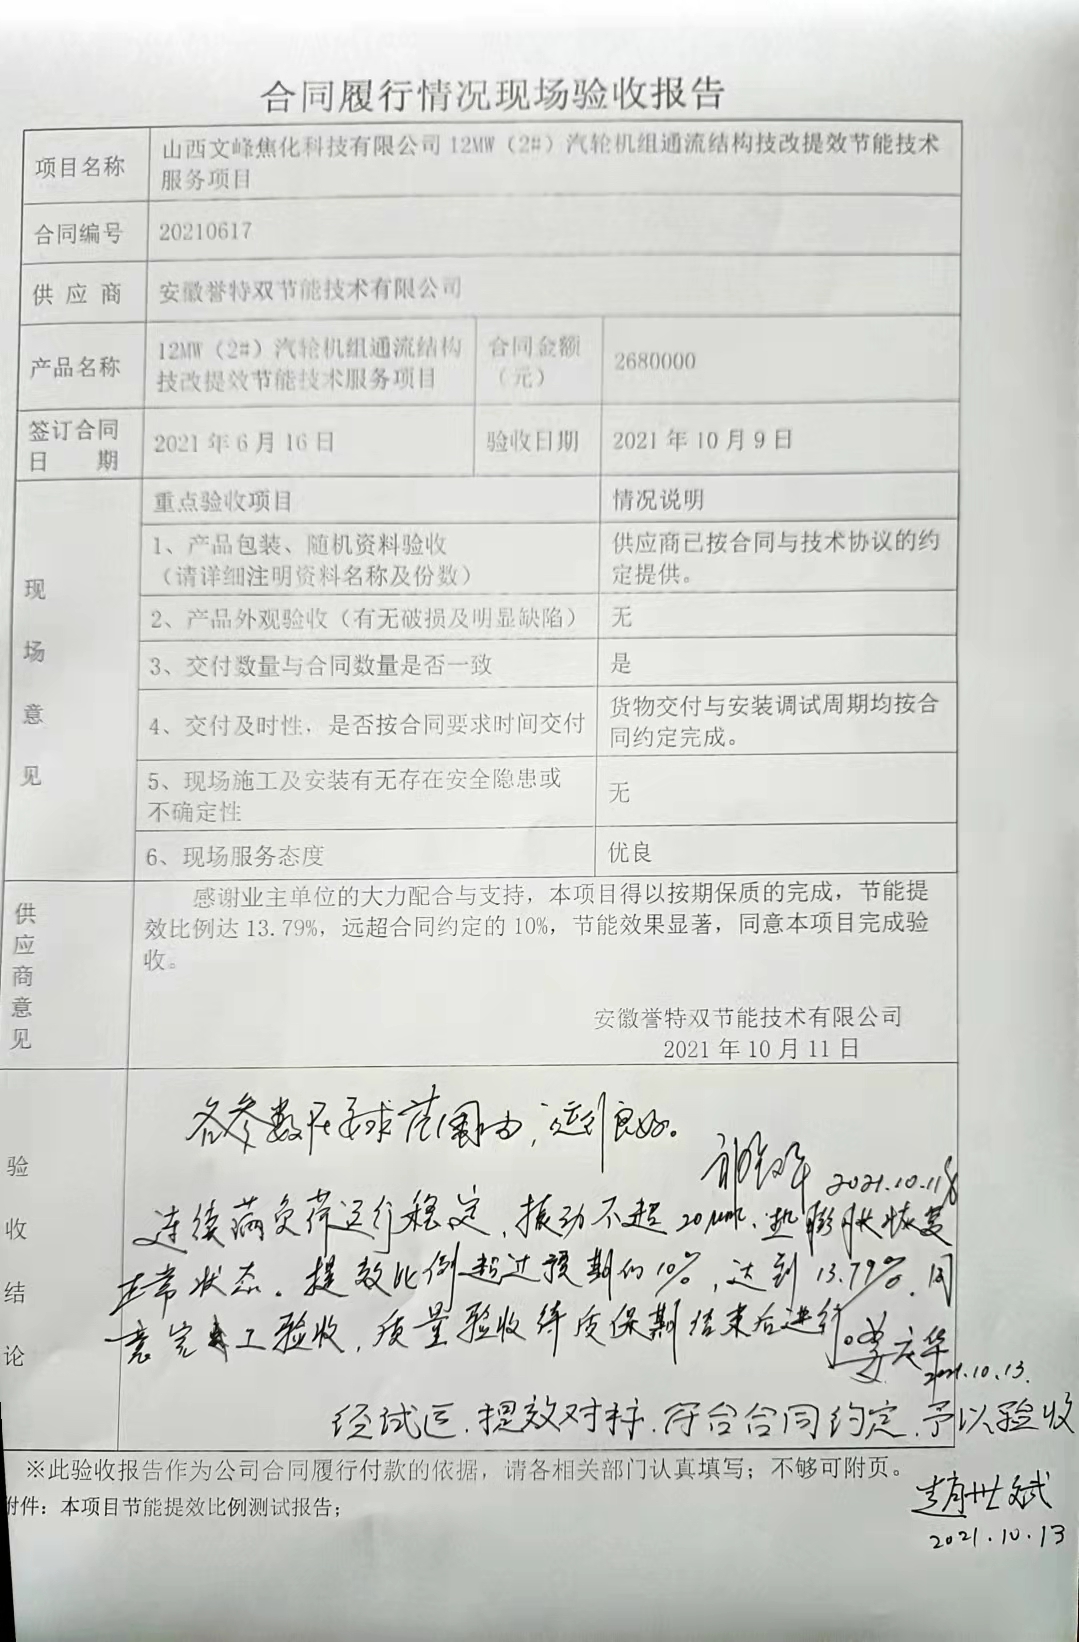 合同履行情况现场验收报告
项目名称
山西文峰焦化科技有限公司12MW（2#）汽轮机组通流结构技改提效节能技术
服务项目
合同编号
20210617
供应商
安徽誉特双节能技术有限公司
产品名称
12MW（2#）汽轮机组通流结构
技改提效节能技术服务项目
合同金额
（元）
2680000
签订合同
日 期
2021年6月16日
验收日期
2021年10月9日
现场意见
重点验收项目
情况说明
1、产品包装、随机资料验收
（请详细注明资料名称及份数）
供应商已按合同与技术协议的约
定提供。
2、产品外观验收（有无破损及明显缺陷）
无
3、交付数量与合同数量是否一致
是
4、交付及时性，是否按合同要求时间交付
货物交付与安装调试周期均按合
同约定完成。
5、现场施工及安装有无存在安全隐患或
不确定性
无
6、现场服务态度
优良
供应商意见
感谢业主单位的大力配合与支持，本项目得以按期保质的完成，节能提
效比例达13.79%，远超合同约定的10%，节能效果显著，同意本项目完成验
收。
安徽誉特双节能技术有限公司
2021年10月11日
验收结论
各参数在要求范围内，运行良好。
2021.10.11
连续满负荷运行稳定，振动不超20μm，热膨胀恢复
正常状态。提效比例超过预期的10%，达到13.79%。同
意完工验收，质量验收待质保期结束后进行。
姜庆华
2021.10.13.
经试运、提效对标，符合合同约定，予以验收
※此验收报告作为公司合同履行付款的依据，请各相关部门认真填写；不够可附页。
附件：本项目节能提效比例测试报告；
赵世斌
2021.10.13